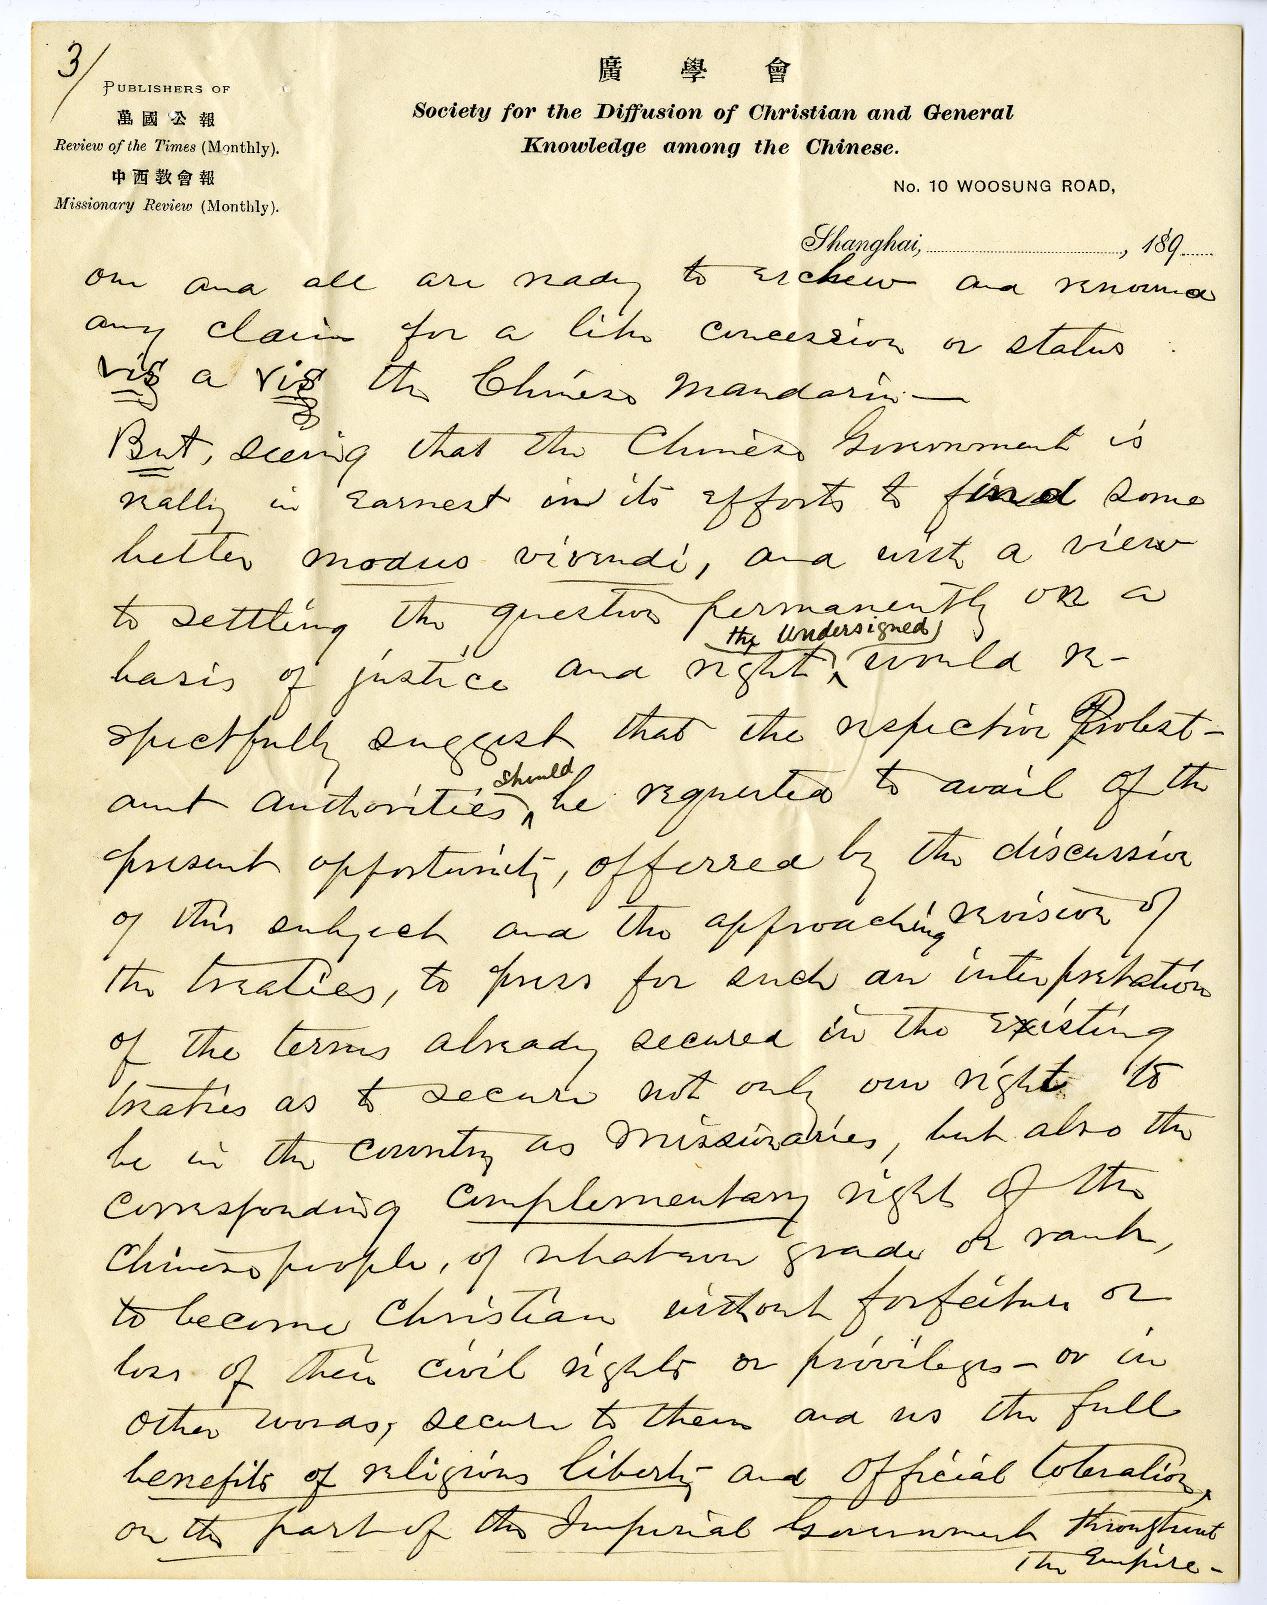 3/
PUBLISHERS OF
萬國公報
Review of the Times (Monthly).
中西教會報
Missionary Review (Monthly).
廣學會
Society for the Diffusion of Christian and General
Knowledge among the Chinese.
No. 10 WOOSUNG ROAD,
Shanghai, , 189
one and all are ready to eschew and renounce
any claim for a like concession or status
vis a vis the Chinese Mandarin—
But, seeing that the Chinese Government is
really in earnest in its efforts to find some
better modus vivendi, and with a view
to settling the question permanently on a
the Undersigned
basis of justice and right, would re-
spectfully suggest that the respective Protest-
should
ant authorities be requested to avail of the
present opportunity, offerred by the discussion
of this subject and the approaching revision of
the treaties, to press for such an interpretation
of the terms already secured in the existing
treaties as to secure not only our right to
be in the country as Missionaries, but also the
corresponding complementary right of the
Chinese people, of whatever grade or rank,
to become Christian without forfeiture or
loss of their civil rights or privileges - or in
other words, secure to them and us the full
benefits of religious liberty and official toleration,
on the part of the Imperial Government throughout
the Empire-